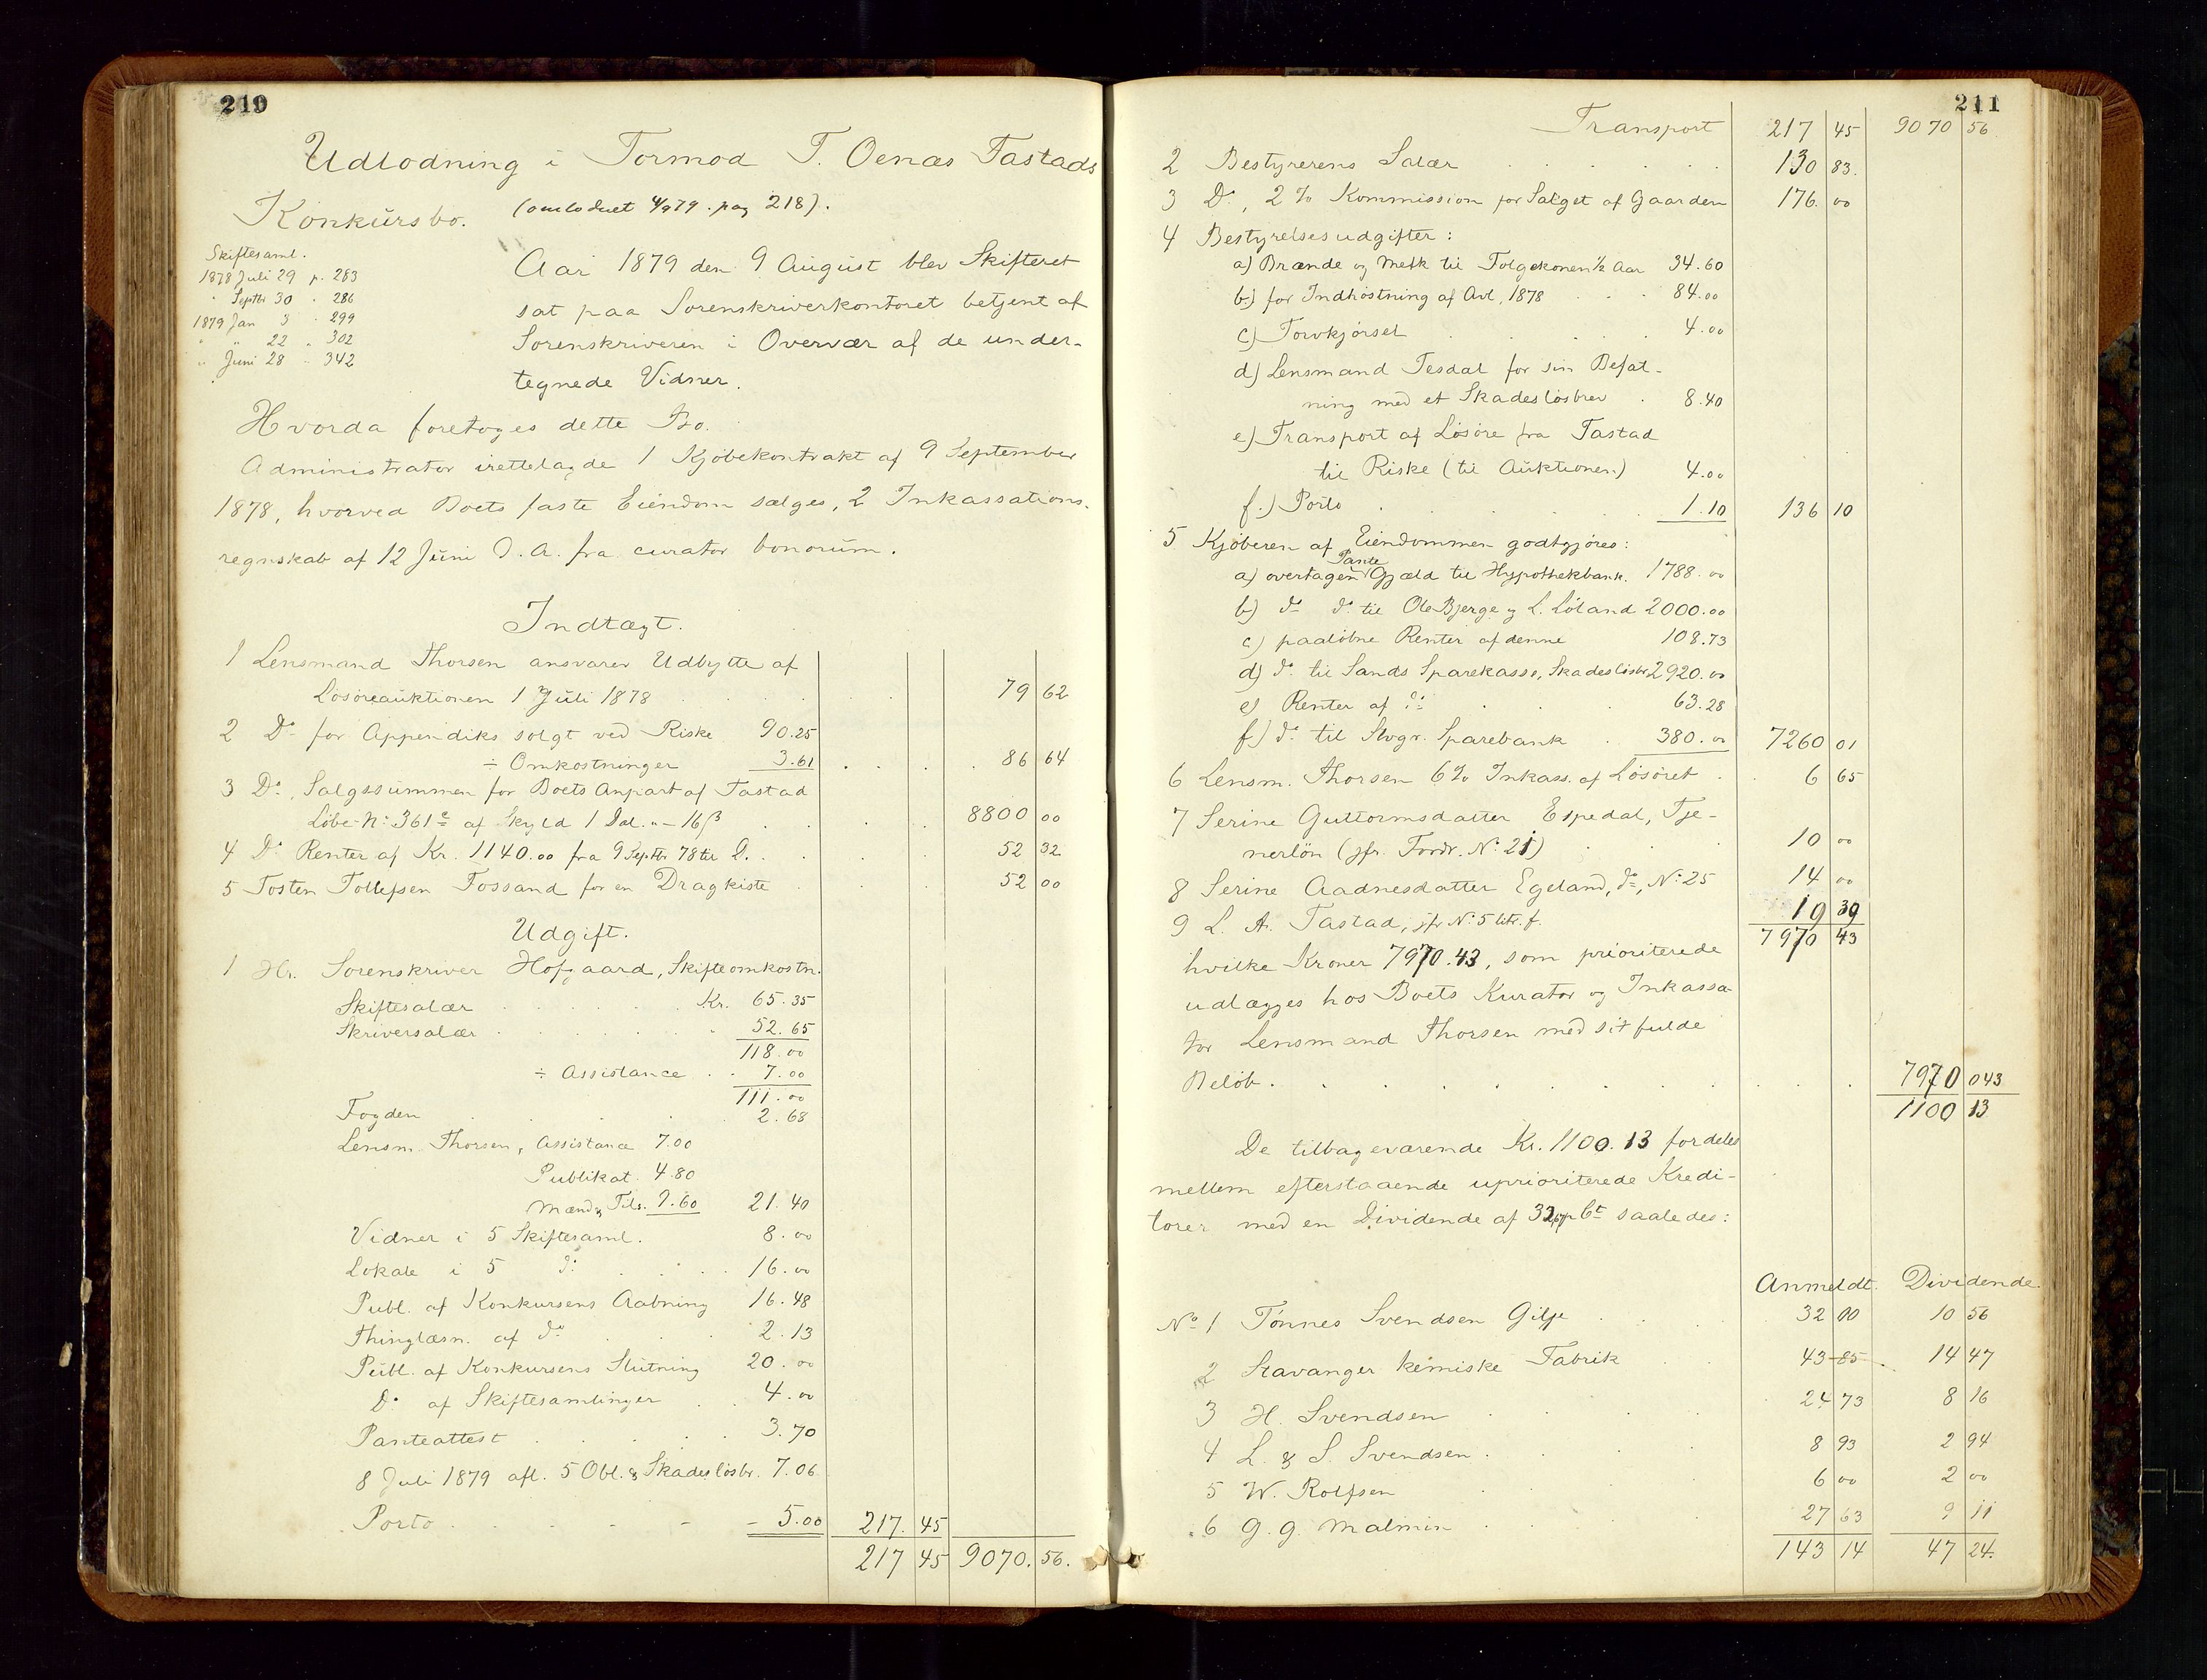 210
Udlodning i Tormod T. Oenæs Tastads
Konkursbo. (omlodnet 4/9 79. pag 218).
Skiftesaml.
1878 Juli 29 p. 283
" Septbr 30 " 286
1879 Jan 3 " 299
" " 22 " 302
" Juni 28 " 342
Aar 1879 den 9 August blev Skifteret
sat paa Sorenskriverkontoret betjent af
Sorenskriveren i Overvær af de under-
tegnede Vidner.
Hvorda foretoges dette Bo.
Administrator irettelagde 1 Kjøbekontrakt af 9 September
1878, hvorved Boets faste Eiendom sælges, 2 Inkassations-
regnskab af 12 Juni D. A. fra curator bonorum.
Indtægt.
1 Lensmand Thorsen ansvarer Udbytte af
Løsøreauktionen 1 Juli 1878 79 62
2 Do for Appendiks solgt ved Riske 90.25
÷ Omkostninger 3.61 86 64
3 Do, Salgssummen for Boets Anpart af Tastad
Løbe No 361c af Skyld 1 Dal. " – 16 β 8800 00
4 Do Renter af Kr. 1140.00 fra 9 Septbr 78 til D. 52 32
5 Tosten Tollefsen Fossand for en Dragkiste 52 00
Udgift.
1 Hr. Sorenskriver Hofgaard, Skifteomkostn.
Skiftesalær Kr. 65.35
Skriversalær " 52.65
118.00
÷ Assistance 7.00
111.00
Fogden 2.68
Lensm. Thorsen, Assistance 7.00
Publikat. 4.80
Mænd, Tils. 9.60 21.40
Vidner i 5 Skiftesaml. 8.00
Lokale i 5 do 16.00
Publ. af Konkursens Aabning 16.48
Thinglæsn. af do 2.13
Publ. af Konkursens Slutning 20.00
Do af Skiftesamlinger 4.00
Panteattest 3.70
8 Juli 1879 afl. 5 Obl. & Skadesløsbr. 7.06
Porto 5.00 217. 45
217 45 9070. 56.
211
Transport 217 45 9070 56
2 Bestyrerens Salær 130 83.
3 Do, 2 % Kommission for Salget af Gaarden 176. 00
4 Bestyrelsesudgifter:
a) Brænde og Melk til Folgekonen 1/2 Aar 34.60
b) for Indhøstning af Avl, 1878 84.00
c) Torvkjørsel 4.00
d) Lensmand Tesdal for sin Befat-
ning med et Skadesløsbrev 8.40
e) Transport af Løsøre fra Tastad
til Riske (til Auktionen) 4.00
f.) Porto 1.10 136 10
5 Kjøberen af Eiendommen godtgjøres:
a) overtagen Pante Gjæld til Hypothekbank. 1788.00
b) do do til Ole Bjerge og L. Løland 2000.00
c) paaløbne Renter af denne 108.73
d) do til Sands Sparekasse, Skadesløsbr 2920.00
e) Renter af do 63.28
f) do til Stvgr. Sparebank 380.00 7260 01
6 Lensm. Thorsen 6 % Inkass. af Løsøret 6 65
7 Serine Guttormsdatter Espedal, Tje-
nerløn (jfr. Fordr. No 21) 10 00
8 Serine Aadnesdatter Egeland, do, No 25 14 00
9 L. A. Tastad, jfr No 5 litr. f. 19 39
7970 43
hvilke Kroner 7970.43, som prioriterede
udlægges hos Boets Kurator og Inkassa-
tor Lensmand Thorsen med sit fulde
Beløb. 7970 043
1100 13
De tilbageværende Kr. 1100.13 fordeles
mellem efterstaaende uprioriterede Kredi-
torer med en Dividende af pCt saaledes:
Anmeldt. Dividende.
No 1 Tønnes Svendsen Gilje 32 00 10 56
2 Stavanger kemiske Fabrik 43 85 14 47
3 H. Svendsen 24 73 8 16
4 L. & S. Svendsen 8 93 2 94
5 W. Rolfsen 6 00 2 00
6 G. G. Malmin 27 63 9 11
143 14 47 24.